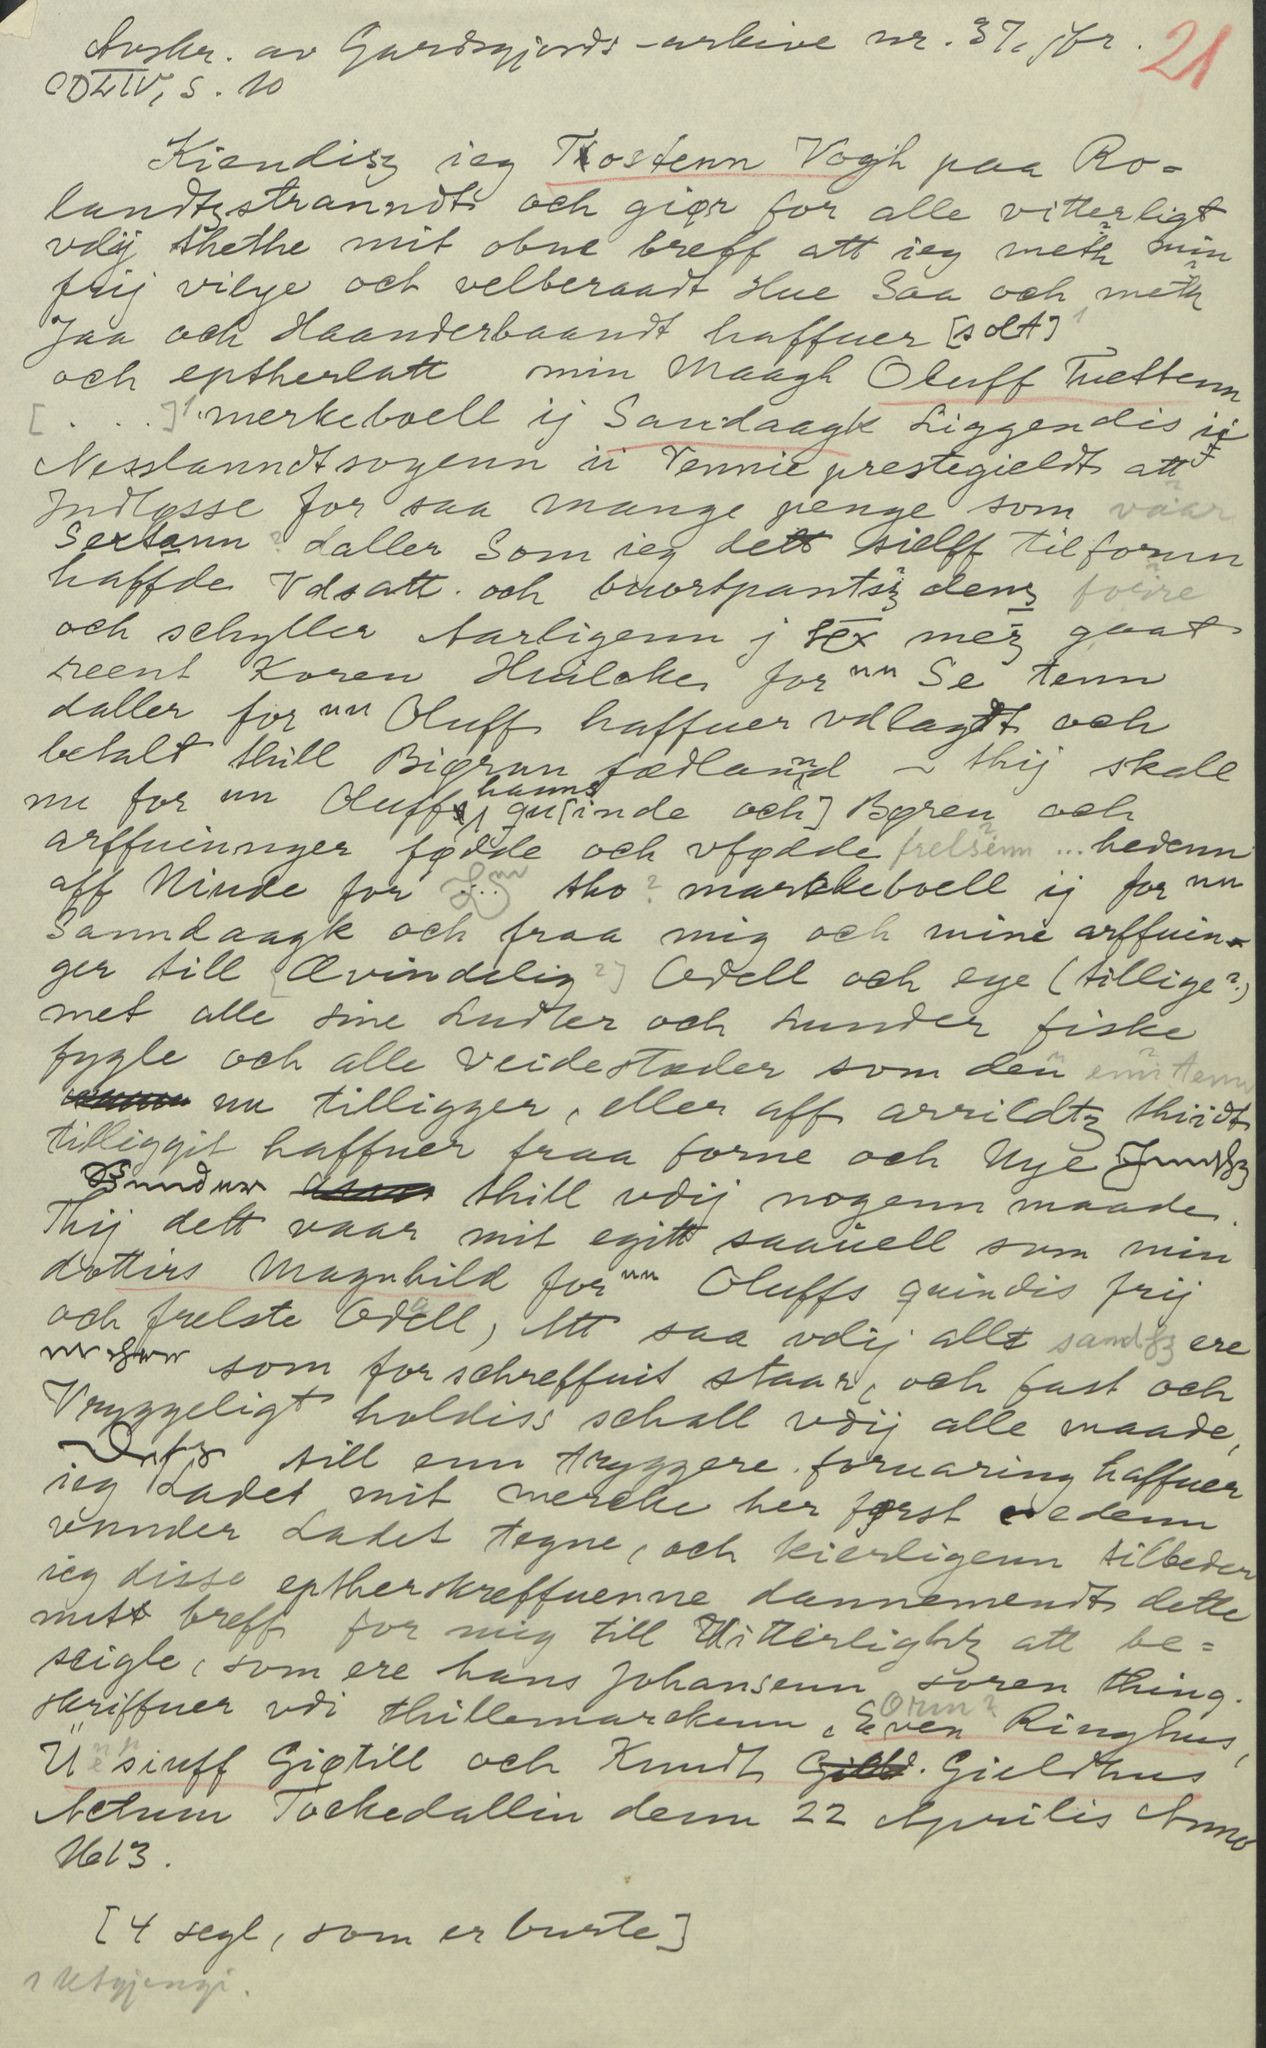 Avskr. av Gardsgjords-arkive nr. 37, jfr. 21
CDLIV, s. 10
Kiendisz ieg Tostenn Vogh paa Ro-
landtzstranndt och giør for alle vitterligt
vdij thethe mit obne breff att ieg meth min
frij vilge och velberaadt Hue Saa och meth
Jaa och Haanderbaandt haffuer [solt] 1
och eptherlatt min Maagh Oluff Tuettenn
[. . .]1 merkeboell ij Sandaagk Liggendis ij
Nesslanndtsogenn ii Vennie prestegieldt att
Jndløsse for saa mange penge som vaar
Sextann ? daller Som ieg dett sielff tilfornn
haffde Vdsatt och buortpantsz denz
och schyller Aarligenn j sex mez gaat
reent Koren Huilcke for nn Se tenn
daller for nn Oluff haffuer vdlagdt och
betalt thill Bigrun fædland ~ thij skale
nu for nn Oluff hanns qu[inde och] Børen och
arffuinnger fødde och vfødde frelsenn ... hedenn
aff Ninde for ... nn tho ? markeboell ij for nn
Sanndaagk och fraa mig och mine arffuin-
ger till [Ævindelig ?] Odell och eye (tillige ?)
met alle sine Ludter och Lunder fiske
fygle och alle veidestæder som den
nu tilligger, eller aff arrildtz thiidt
tilliggit haffuer fraa forne och Nye
thill vdij nogenn maade.
Thij dett vaar mit egitt saauell som min
dottirs Magnhild for nn Oluffs quindis frij
och frelste Odell, Att saa vdij allt sandtz ere
som forschreffuit staar, och fast och
Vryggeligt holdiss schall vdij alle maade,
till enn tryggere foruaring haffuer
ieg Ladet mit mercke her først nedenn
vnnder Ladet tegne, och kierligenn tilbeder
ieg disse eptherskreffuenne dannemendt dette
mitt breff for mig till Vitterlightz att be=
seigle, som ere hans Johansenn soren thing.
skriffuer vdi thillemarckenn, Even Orm ? Ringhus,
siuff Giøtill och Knudt Gieldhus
Actum Tockedallin denn 22 Aprilis Anno
1613.
[4 segl, som er burte]
1 Utgjengi.